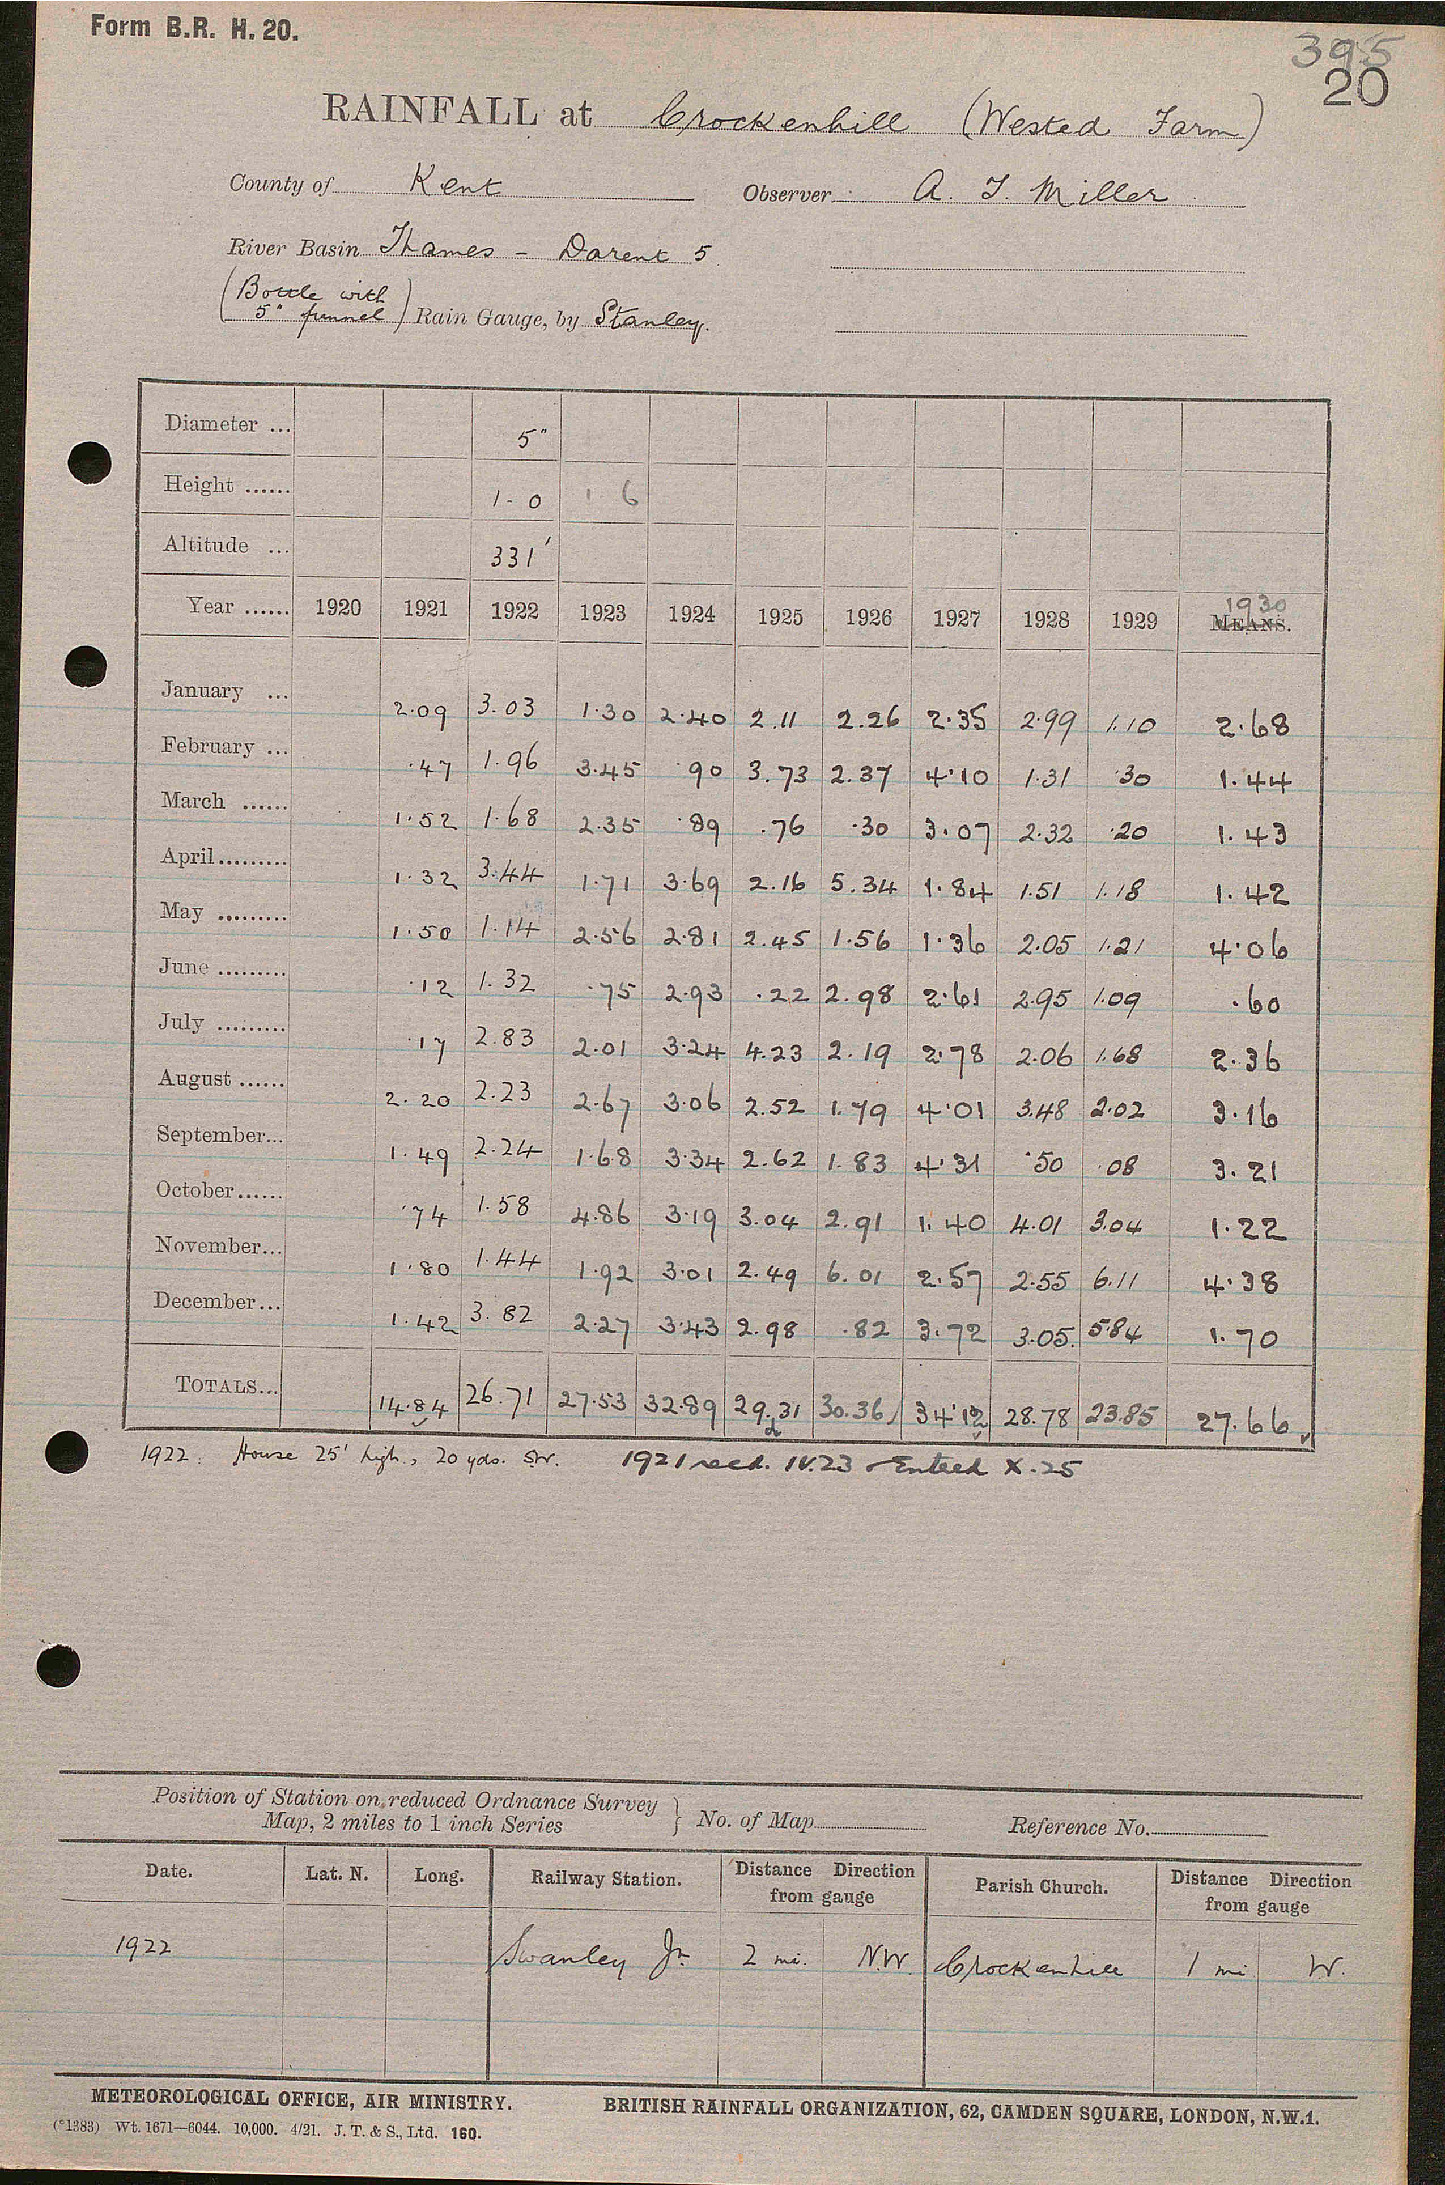 Form B.R. H. 20.
395
20
RAINFALL at Crockenhill (Wested Farm)
County of Kent Observer A. T. Miller
River Basin Thames - Darent 5
(Bottle with 5" funnel) Rain Gauge, by Stanley.
Diameter ... 5"
Height ...... 1-0 1 6
Altitude ... 331'
Year ...... 1920 1921 1922 1923 1924 1925 1926 1927 1928 1929 1930 MEANS.
January ... 2.09 3.03 1.30 2.40 2.11 2.26 2.35 2.99 1.10 2.68
February ... .47 1.96 3.45 .90 3.73 2.37 4.10 1.31 .30 1.44
March ...... 1.52 1.68 2.35 .89 .76 .30 3.07 2.32 .20 1.43
April ......... 1.32 3.44 1.71 3.69 2.16 5.34 1.84 1.51 1.18 1.42
May ......... 1.50 1.14 2.56 2.81 2.45 1.56 1.36 2.05 1.21 4.06
June ......... .12 1.32 .75 2.93 .22 2.98 2.61 2.95 1.09 .60
July ......... .17 2.83 2.01 3.24 4.23 2.19 2.78 2.06 1.68 2.36
August ...... 2.20 2.23 2.67 3.06 2.52 1.79 4.01 3.48 2.02 3.16
September... 1.49 2.24 1.68 3.34 2.62 1.83 4.31 .50 .08 3.21
October...... .74 1.58 4.86 3.19 3.04 2.91 1.40 4.01 3.04 1.22
November... 1.80 1.44 1.92 3.01 2.49 6.01 2.57 2.55 6.11 4.38
December... 1.42 3.82 2.27 3.43 2.98 .82 3.72 3.05 5.84 1.70
TOTALS... 14.84 26.71 27.53 32.89 29.31 30.36 34.12 28.78 23.85 27.66
1922. House 25' high, 20 yds. SW. 1921 recd. IV.23 Entered X.25
Position of Station on reduced Ordnance Survey
Map, 2 miles to 1 inch Series } No. of Map Reference No.
Date. Lat. N. Long. Railway Station. Distance Direction from gauge Parish Church. Distance Direction from gauge
1922 Swanley Jn. 2 mi. N.W. Crockenhill 1 mi W.
METEOROLOGICAL OFFICE, AIR MINISTRY. BRITISH RAINFALL ORGANIZATION, 62, CAMDEN SQUARE, LONDON, N.W.1.
(*1383) Wt. 1671—6044. 10,000. 4/21. J. T. & S., Ltd. 160.